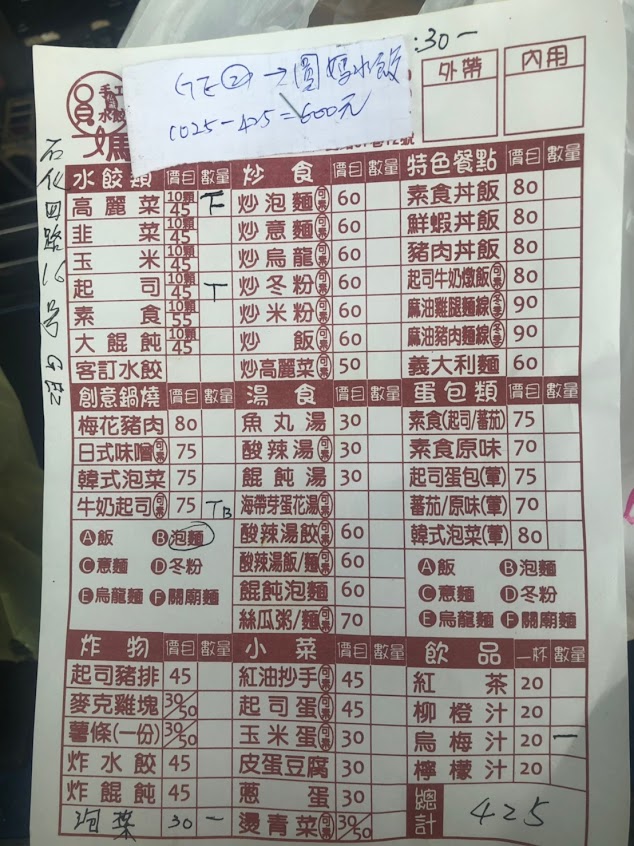 :30-
GE② → 圓媽水餃
1025-425=600元
手工
水餃
外帶
內用
石化四路16号
水餃類 價目 數量
高麗菜 10顆 45 T
韭菜 10顆 45
玉米 10顆 45
起司 10顆 45 T
素食 10顆 55
大餛飩 10顆 45
客訂水餃
炒食 價目 數量
炒泡麵 可素 60
炒意麵 可素 60
炒烏龍 可素 60
炒冬粉 可素 60
炒米粉 可素 60
炒飯 可素 60
炒高麗菜 可素 50
特色餐點 價目 數量
素食丼飯 80
鮮蝦丼飯 80
豬肉丼飯 80
起司牛奶燉飯 可素 80
麻油雞腿麵線 冬季 90
麻油豬肉麵線 冬季 90
義大利麵 60
創意鍋燒 價目 數量
梅花豬肉 80
日式味噌 可素 75
韓式泡菜 75
牛奶起司 可素 75 TB
Ⓐ飯 Ⓑ泡麵
Ⓒ意麵 Ⓓ冬粉
Ⓔ烏龍麵 Ⓕ關廟麵
湯食 價目 數量
魚丸湯 30
酸辣湯 可素 30
餛飩湯 30
海帶芽蛋花湯 可素
酸辣湯餃 可素 60
酸辣湯飯/麵 可素 60
餛飩泡麵 60
絲瓜粥/麵 可素 70
蛋包類 價目 數量
素食(起司/蕃茄) 75
素食原味 70
起司蛋包(葷) 75
蕃茄/原味(葷) 70
韓式泡菜(葷) 80
Ⓐ飯 Ⓑ泡麵
Ⓒ意麵 Ⓓ冬粉
Ⓔ烏龍麵 Ⓕ關廟麵
炸物 價目 數量
起司豬排 45
麥克雞塊 30/50
薯條(一份) 30/50
炸水餃 45
炸餛飩 45
泡菜 30 一
小菜 價目 數量
紅油抄手 可素 45
起司蛋 可素 45
玉米蛋 可素 30
皮蛋豆腐 30
蔥蛋 30
燙青菜 可素 30/50
飲品 一杯 數量
紅茶 20
柳橙汁 20
烏梅汁 20 一
檸檬汁 20
總計 425